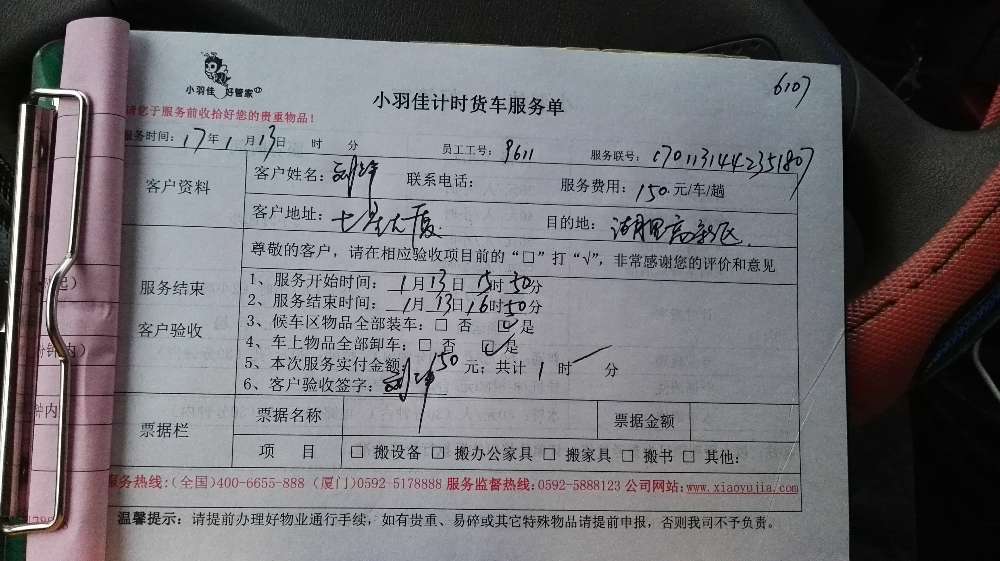 小羽佳 好管家
6107
小羽佳计时货车服务单
请您于服务前收拾好您的贵重物品!
服务时间: 17年1月13日 时 分 员工工号: 9611 服务联号: c701131442351807
客户资料
客户姓名: 联系电话: 服务费用: 150元/车/趟
客户地址: 七星大厦 目的地: 湖里高新区
服务结束
客户验收
尊敬的客户，请在相应验收项目前的“□”打“√”，非常感谢您的评价和意见
1、服务开始时间: 1月13日15时50分
2、服务结束时间: 1月13日16时50分
3、候车区物品全部装车: □ 否 ☑ 是
4、车上物品全部卸车: □ 否 ☑ 是
5、本次服务实付金额 150元; 共计 1 时 分
6、客户验收签字:
票据栏
票据名称 票据金额
项 目 □ 搬设备 □ 搬办公家具 □ 搬家具 □ 搬书 □ 其他:
服务热线:(全国)400-6655-888 (厦门)0592-5178888 服务监督热线:0592-5888123 公司网站:www.xiaoyujia.com
温馨提示: 请提前办理好物业通行手续，如有贵重、易碎或其它特殊物品请提前申报，否则我司不予负责。